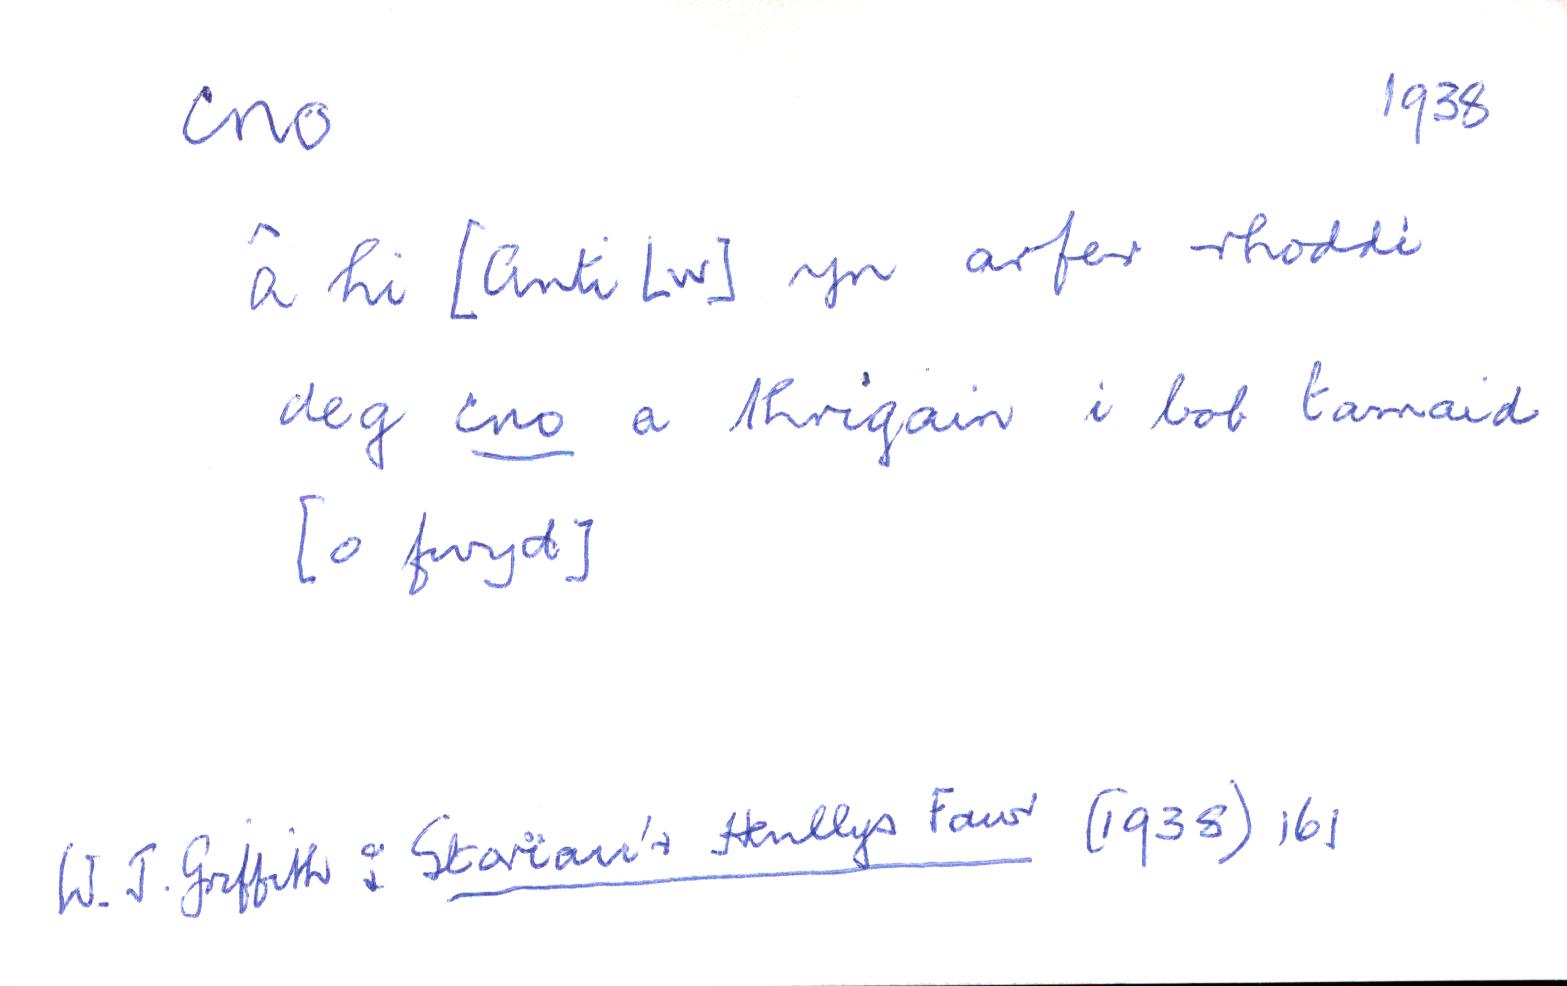 cno 1938
â hi [Anti Lw] yn arfer rhoddi
deg cno a thrigain i bob tamaid
[o fwyd]
W. J. Griffith : Storïau'r Henllys Fawr (1938) 161